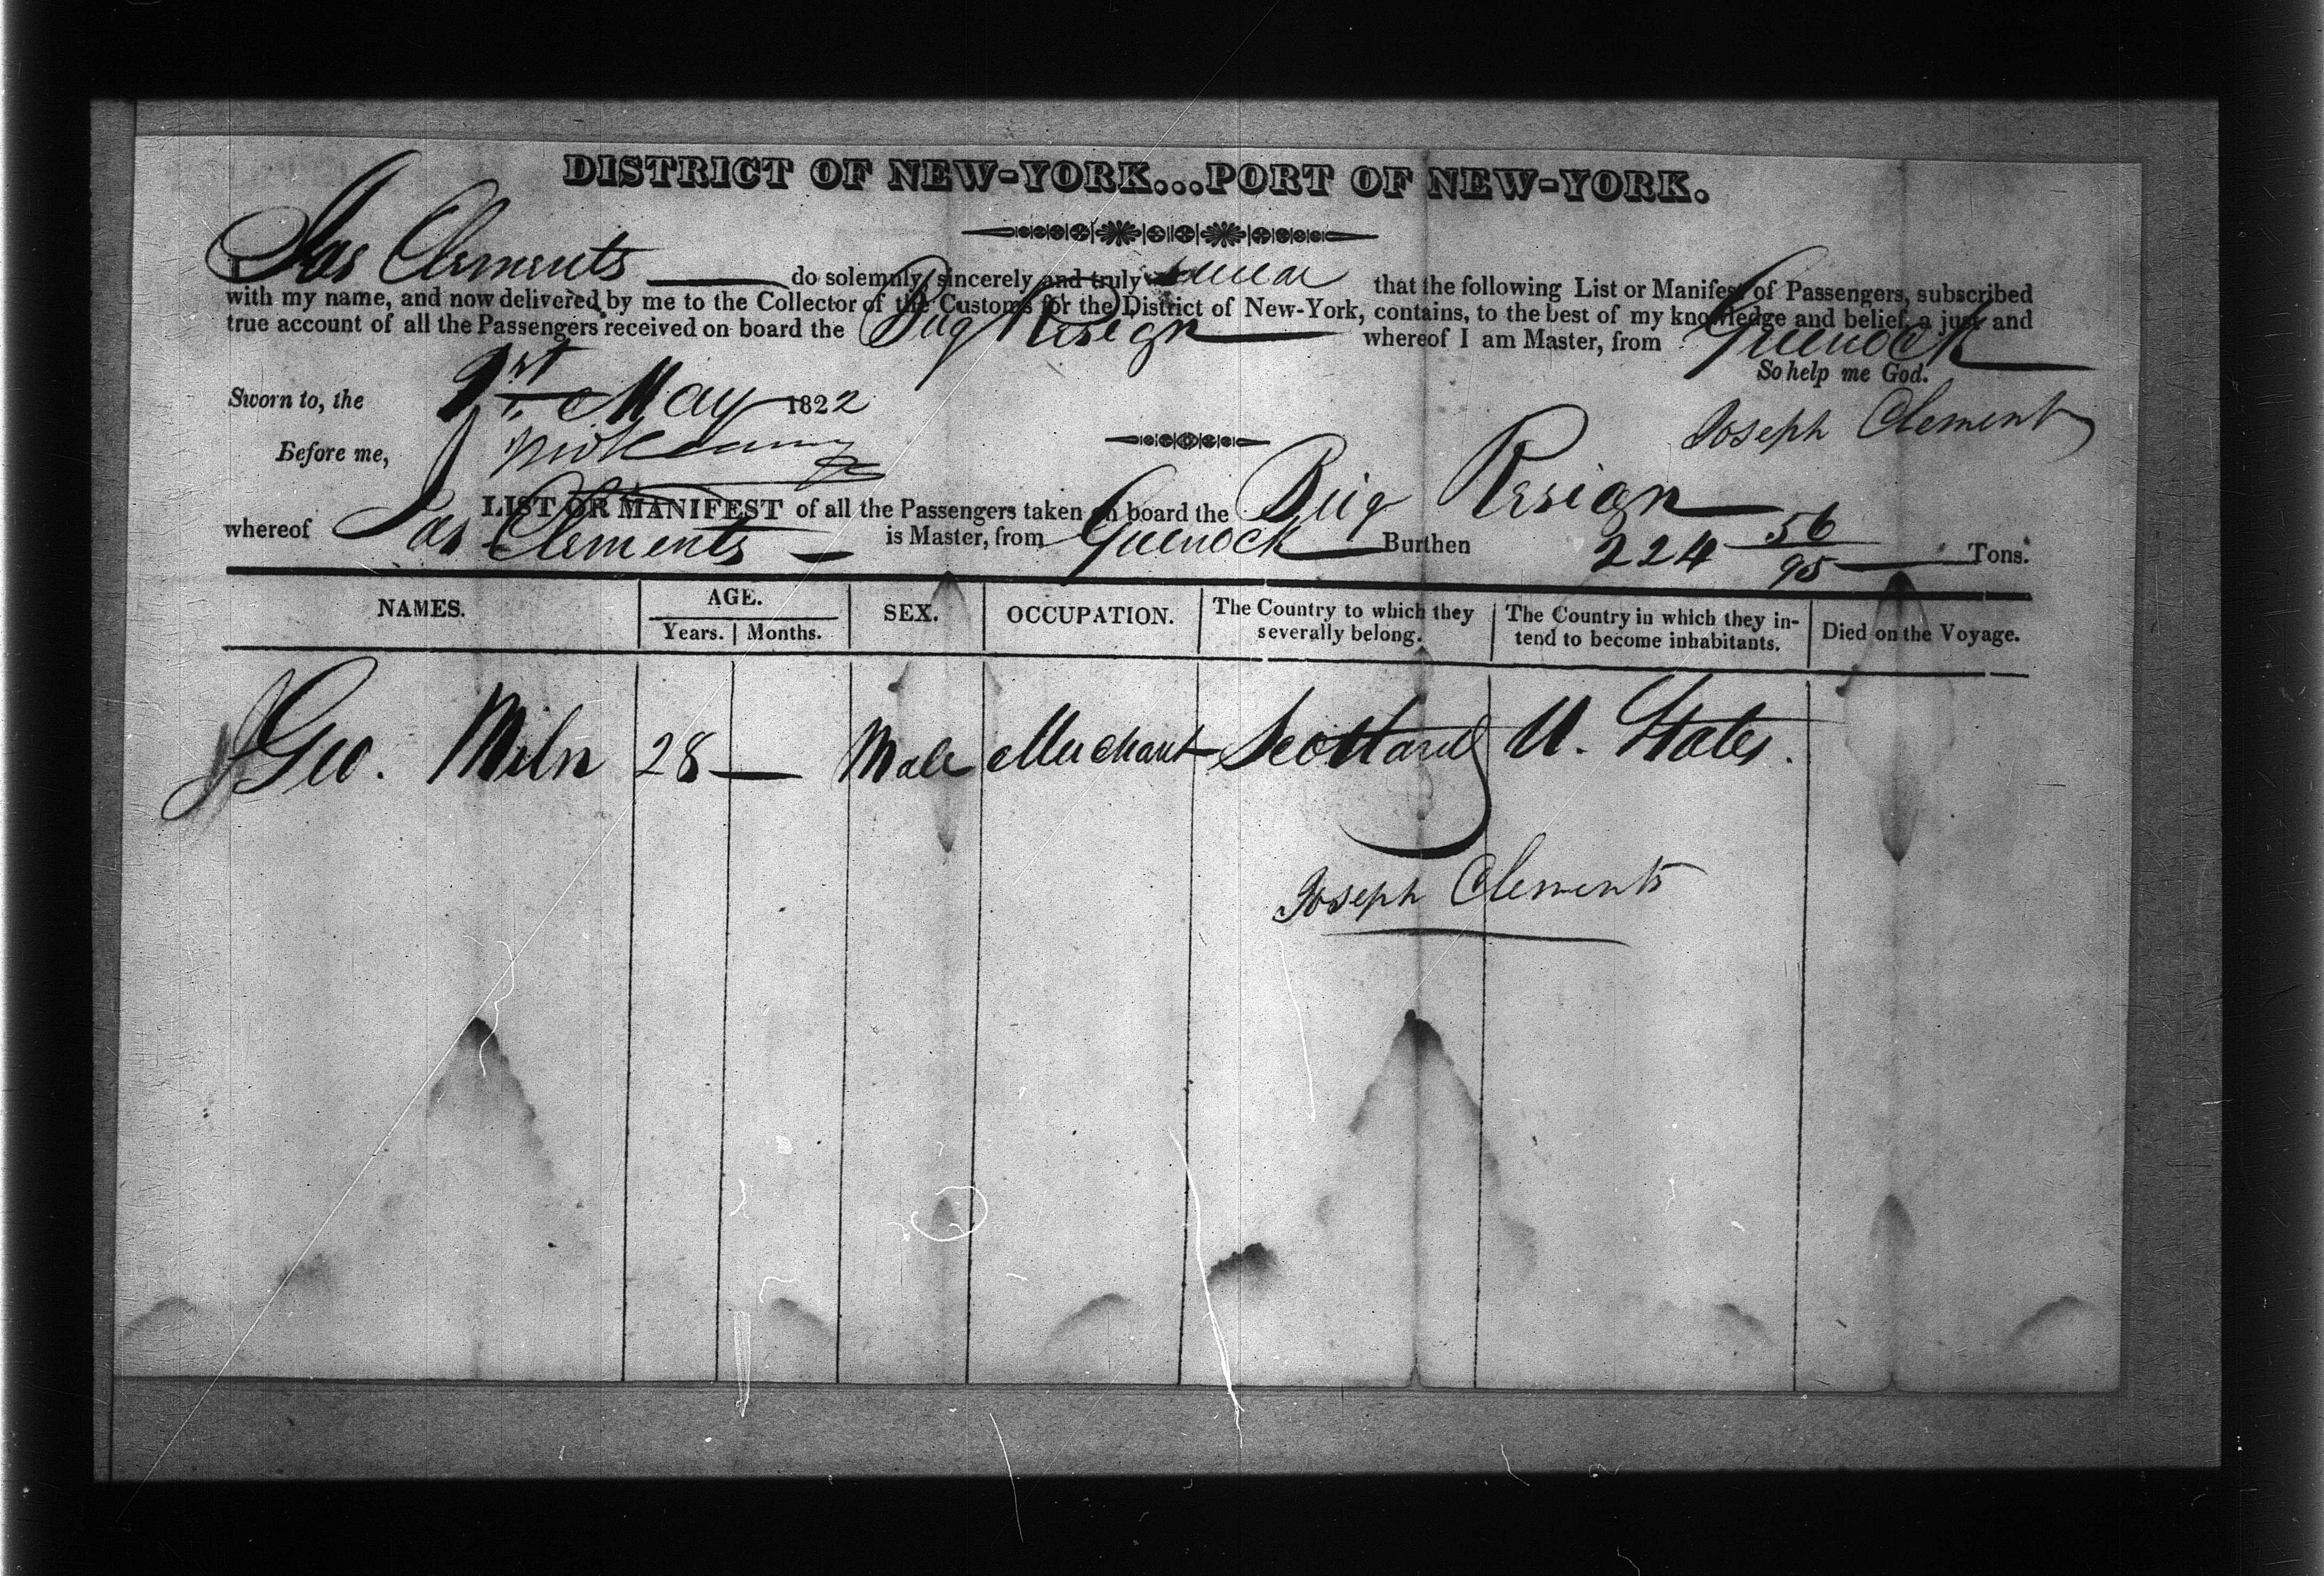 DISTRICT OF NEW-YORK...PORT OF NEW-YORK.
I Jos Clements do solemnly, sincerely and truly swear that the following List or Manifest of Passengers, subscribed
with my name, and now delivered by me to the Collector of the Customs for the District of New-York, contains, to the best of my knowledge and belief, a just and
true account of all the Passengers received on board the Brig Resign whereof I am Master, from Greenock
So help me God.
Sworn to, the 1st May 1822
Joseph Clements
Before me,
LIST OR MANIFEST of all the Passengers taken on board the Brig Resign
whereof Jos Clements is Master, from Greenock Burthen 224 56/95 Tons.
NAMES. AGE. SEX. OCCUPATION. The Country to which they severally belong. The Country in which they in-tend to become inhabitants. Died on the Voyage.
Years. Months.
Geo. Miln 28 — Male Merchant Scotland U. States.
Joseph Clements